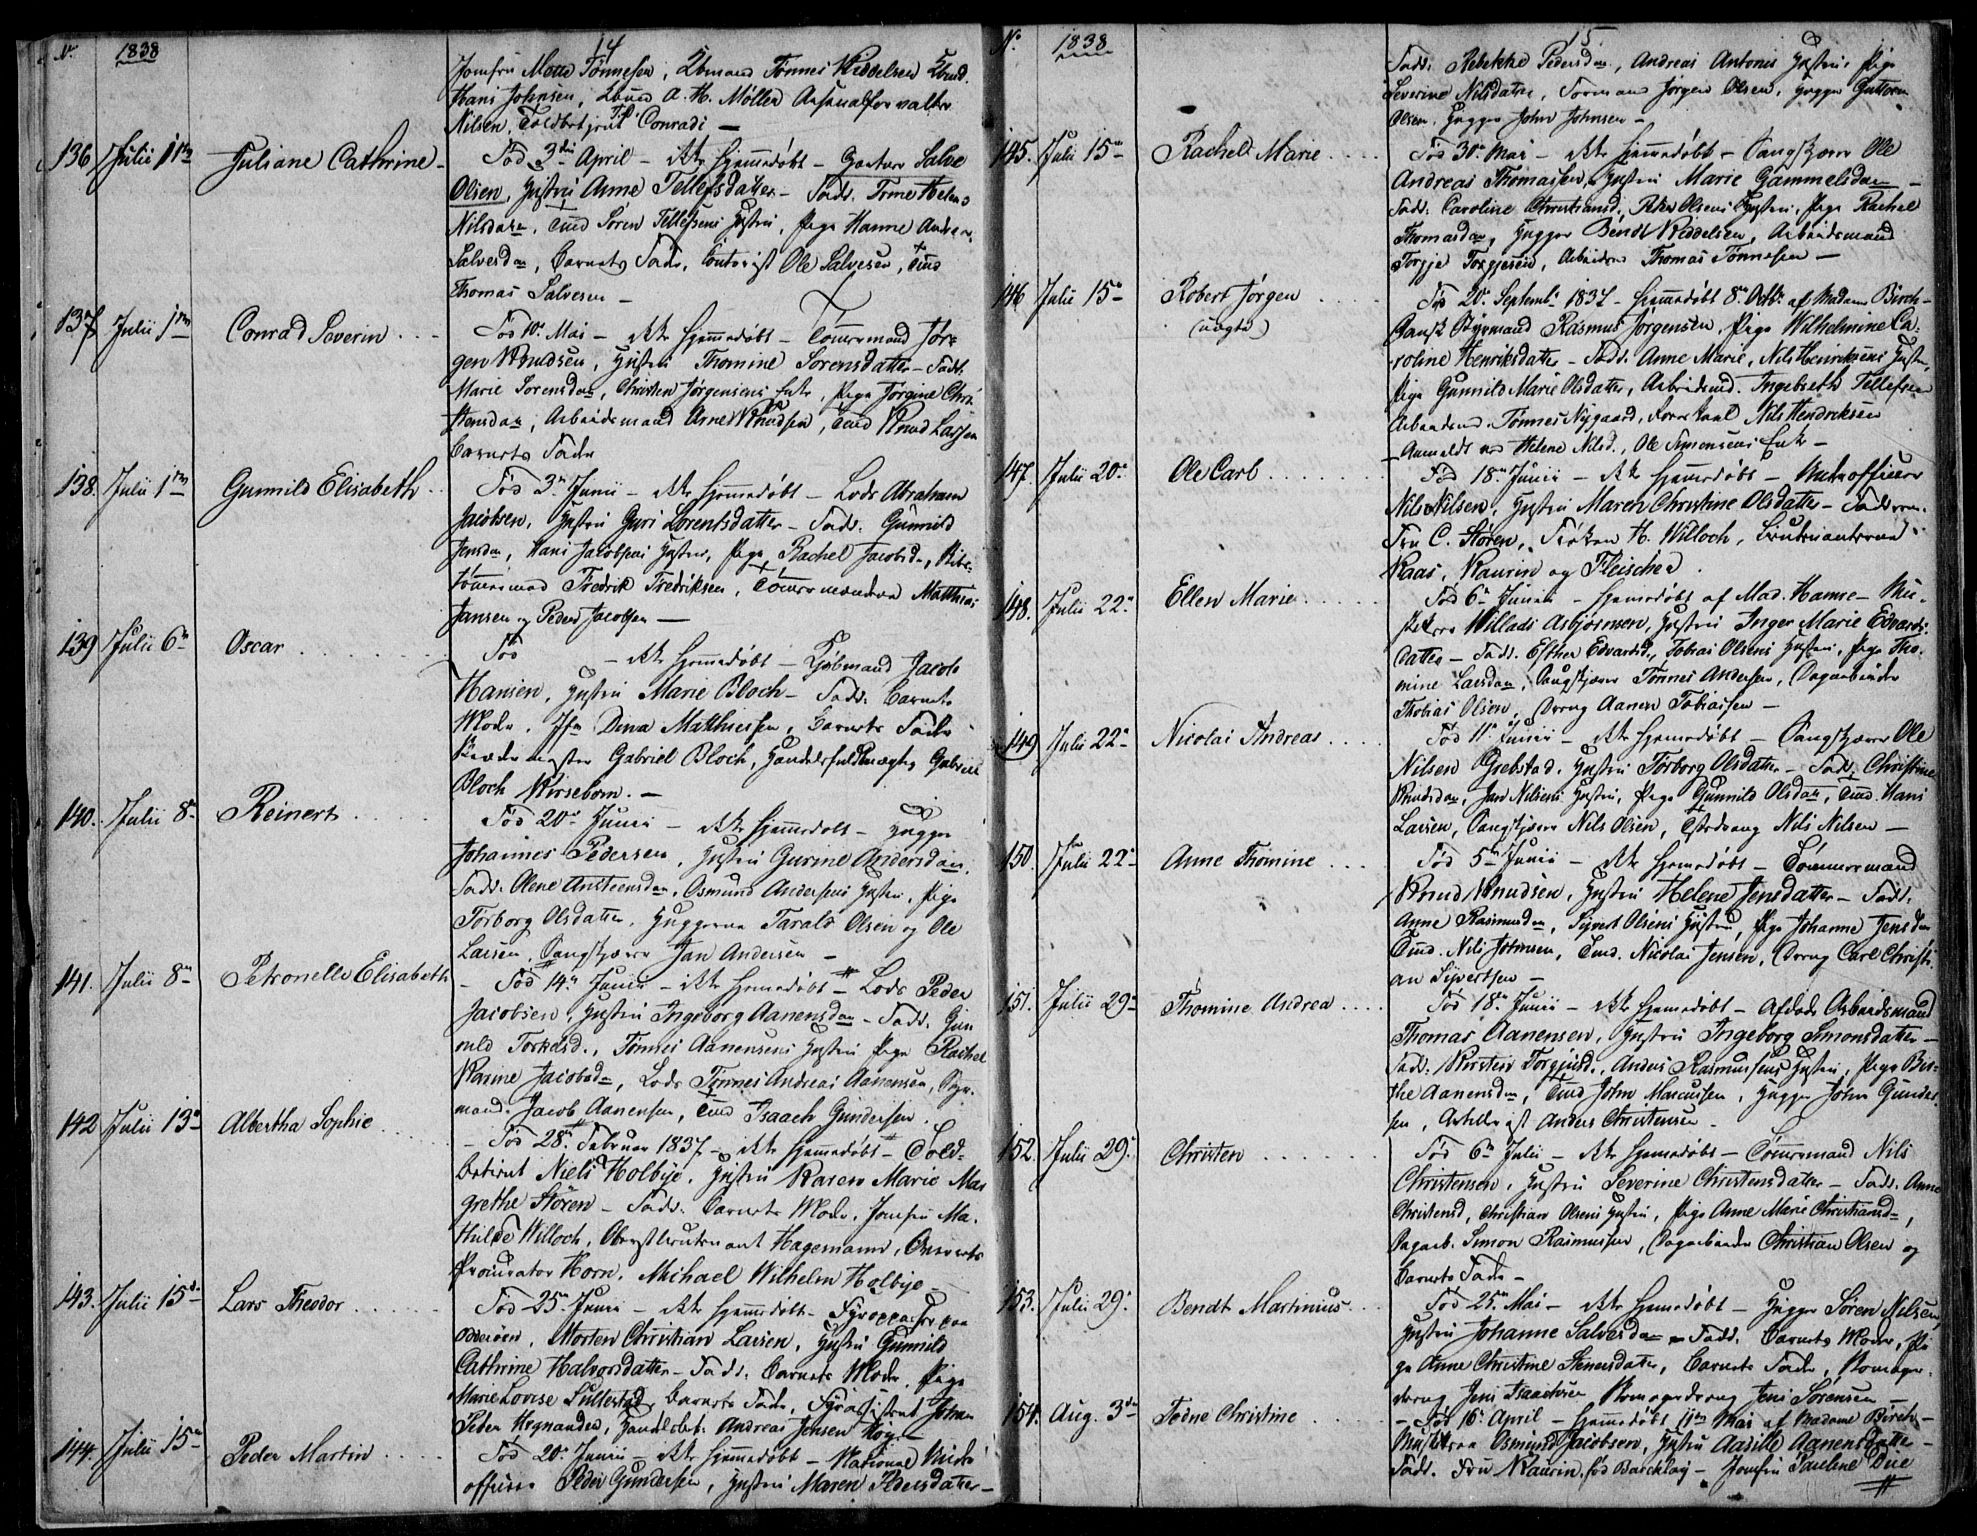 No. 1838
14
Jomfru Tønnesen, Tønnes Weddelsen
Hans Johnsen, A. H. Møller Arsenalforvalter
Nilsen, Toldbetjent Conradi —
136 Julii 1ste Juliane Cathrine —
Fød 3die April — ikke hjemmedøbt — Gartner Salve
Olsen, Hustru Anne Tellefsdatter — Fadd. Trine Helene
Nilsdatr, Tmd Søren Tellefsens Hustru, Pige Hanne Andrea
Salvesdatr, Barnets Fader, Contorist Ole Salvesen, Tmd
Thomas Salvesen —
137 Julii 1ste Conrad Severin . . .
Fød 10de Mai — ikke hjemmedøbt — Tømmermand Jør-
gen Knudsen, Hustru Thomine Sorensdatter — Fadd.
Marie Sorensdatr, Christen Jørgensens Enke, Pige Jørgine Chri-
stensdatr, Arbeidsmand Arne Knudsen, Tmd Knud Larsen
Barnets Fader
138. Julii 1ste Gunnild Elisabeth . .
Fød 3die Junii — ikke hjemmedøbt — Lods Abraham
Jacobsen, Hustru Guri Lorentsdatter — Fadd. Gunnild
Jensdr, Hans Jacobsens Hustru, Pige Rachel Jacobsd.,
Fredrik Fredriksen, Tømmermændene Matthias
Jansen og Peder Jacobsen —
139 Julii 6te Oscar . . . . .
Fød — ikke hjemmedøbt — Kjøbmand Jacob
Hansen, Hustru Marie Bloch — Fadd. Barnets
Moder, Jfr Dina Matthiesen, Barnets Fader
Gabriel Bloch, Handelsfuldmægtig Gabriel
Bloch Kirsebom. —
140. Julii 8de Reinert . . . .
Fød 20de Junii — ikke hjemmedøbt — Hugger
Johannes Pedersen, Hustru Gurine Andersdatr.
Fadd. Olene Ansteensdatr, Osmund Andersens Hustru, Pige
Torborg Olsdatter, Huggerne Tarald Olsen og Ole
Larsen, Jan Andersen —
141. Julii 8de Petronelle Elisabeth
— Fød 14de Junii — ikke hjemmedøbt — Lods Peder
Jacobsen, Hustru Ingeborg Aanensdatr — Fadd. Gun
nild Torkelsd., Tønnes Aanensens Hustru Pige Rachel
Karine Jacobsdr, Lods Tønnes Andreas Aanensen,
mand. Jacob Aanensen, Tmd Isaach Gundersen.
142 Julii 13de Albertha Sophie . . . .
— Fød 28de Februar 1837 — ikke hjemmedøbt — Told-
betient Niels Holbye, Hustru Karen Marie Mar
grethe Stören — Fadd. Barnets Moder, Jomfru Ma-
thilde Willoch, Oberstlieutenant Hagemann,
Procurator Horn, Michael Wilhelm Holbye —
143. Julii 15de Lars Theodor . . . . .
Fød 25de Junii — ikke hjemmedøbt — Fyropasser paa
Morten Christian Larsen, Hustru Gunnild
Cathrine Halvorsdatter — Fadd. Barnets Moder, Pige
Marie Lovise Barnets Fader, Johan
Peder Andreas Jensen
144. Julii 15de Peder Martin . . . .
Fød 20de Junii — ikke hjemmedøbt — National Under
officier Peder Gundersen, Hustru Maren Pedersdatter —
No. 1838
15
Fadd. Rebekke Pedersdatr, Andreas Antonis Hustru, Pige
Severine Nilsdatter, Formand Jørgen Olsen, Hugger Guttorm
Olsen, Hugger John Johnsen —
145. Julii 15de Racheld Marie . . . .
Fød 30te Mai — ikke hjemmedøbt — Ole
Andreas Thomassen, Hustru Marie Gammelsdatr —
Fadd. Caroline Christiansd., Peder Olsens Hustru, Pige Rachel
Thomasdatr, Hugger Bendt Weddelsen, Arbeidsmand
Torgje Torgjesen, Arbeidsm Thomas Tønnesen —
146 Julii 15de Robert Jørgen . . . .
(uægte)
Fød 20de Septembr 1837 — hjemmedøbt 8de Octbr af Madame Birch —
Dansk Styrmand Rasmus Jørgensen, Pige Wilhelmine Ca-
roline Henriksdatter — Fadd. Anne Marie, Nils Henriksens Hustru,
Pige Gunnild Marie Olsdatter, Arbeidsmd. Ingebreth Tellefsen
Arbeidsmd. Tønnes Nygaard, Nils Hendriksen
— Anmeldt ved Helene Nilsd., Ole Simonsens Enke —
147. Julii 20de Ole Carl . . . . . . .
Fød 18de Junii — ikke hjemmedøbt — Underofficier
Nils Nilsen, Hustru Maren Christine Olsdatter — Fadderne
Fru C. Stören, Frøken H. Willoch, Lieutnanterne
Kaas, Kaurin og Fleischer.
148. Julii 22de Ellen Marie . . . . .
Fød 6te Junii — hjemmedøbt af Mad. Hamre — Mu-
sketeer Willads Asbjørnsen, Hustru Inger Marie Edvards-
datter — Fadd. Esther Edvardsd., Tobias Olsens Hustru, Pige Tho-
mine Larsdatr, Tønnes Andersen, Dagarbeider
Thobias Olsen, Dreng Aanen Tobiassen —
149 Julii 22de Nicolai Andreas . . . .
Fød 11te Junii — ikke hjemmedøbt — Ole
Nilsen Grebstad, Hustru Torborg Olsdatter — Fadd. Christine
Knudsdatr, Jan Nilsens Hustru, Pige Gunnild Olsdatr, Tmd. Hans
Larsen, Nils Olsen, Nils Nilsen —
150. Julii 22de Anne Thomine . . .
Fød 5te Junii — ikke hjemmedøbt — Tømmermand
Knud Knudsen, Hustru Helene Jensdatter — Fadd.
Anne Rasmusdatr, Syvert Olsens Hustru, Pige Johanne Jensdatr
Tmd. Nils Johnsen, Tmd. Nicolai Jensen, Dreng Carl Christi-
an Syvertsen —
151. Julii 29de Thomine Andrea . . . .
Fød 18de Junii — ikke hjemmedøbt — Afdøde Arbeidsmand
Thomas Aanensen, Hustru Ingeborg Simonsdatter —
Fadd. Kirsten Torgjusd., Anders Rasmussens Hustru, Pige Bir-
the Aanensdr, Tmd John Marcussen, Hugger John Gunder-
sen, Artillerist Anders Christensen —
152. Julii 29de Christen . . . . . . .
Fød 6te Julii — ikke hjemmedøbt — Tømmermand Nils
Christensen, Hustru Severine Christensdatter — Fadd. Anne
Christensd, Christian Olsens Hustru, Pige Anne Marie Christiansdr,
Dagarb. Simon Rasmussen, Dagarbeider Christian Olsen og
Barnets Fader —
153. Julii 29de Bendt Martinius . . .
Fød 25de Mai — ikke hjemmedøbt — Hugger Søren Nilsen,
Hustru Johanne Salvesdatr — Fadd. Barnets Moder, Pi
ge Anne Christine Barnets Fader,
dreng Jens Isaachsen Jens Sørensen —
154. Aug. 3die Tedne Christine . . .
— Fød 16de April — hjemmedøbt 11te Mai af Madame Birch —
Musketeer Osmund Jacobsen, Hustru Aasille Aanensdatter —
Fadd. Fru Kaurin, fød Barcklay — Jomfru Pauline Due